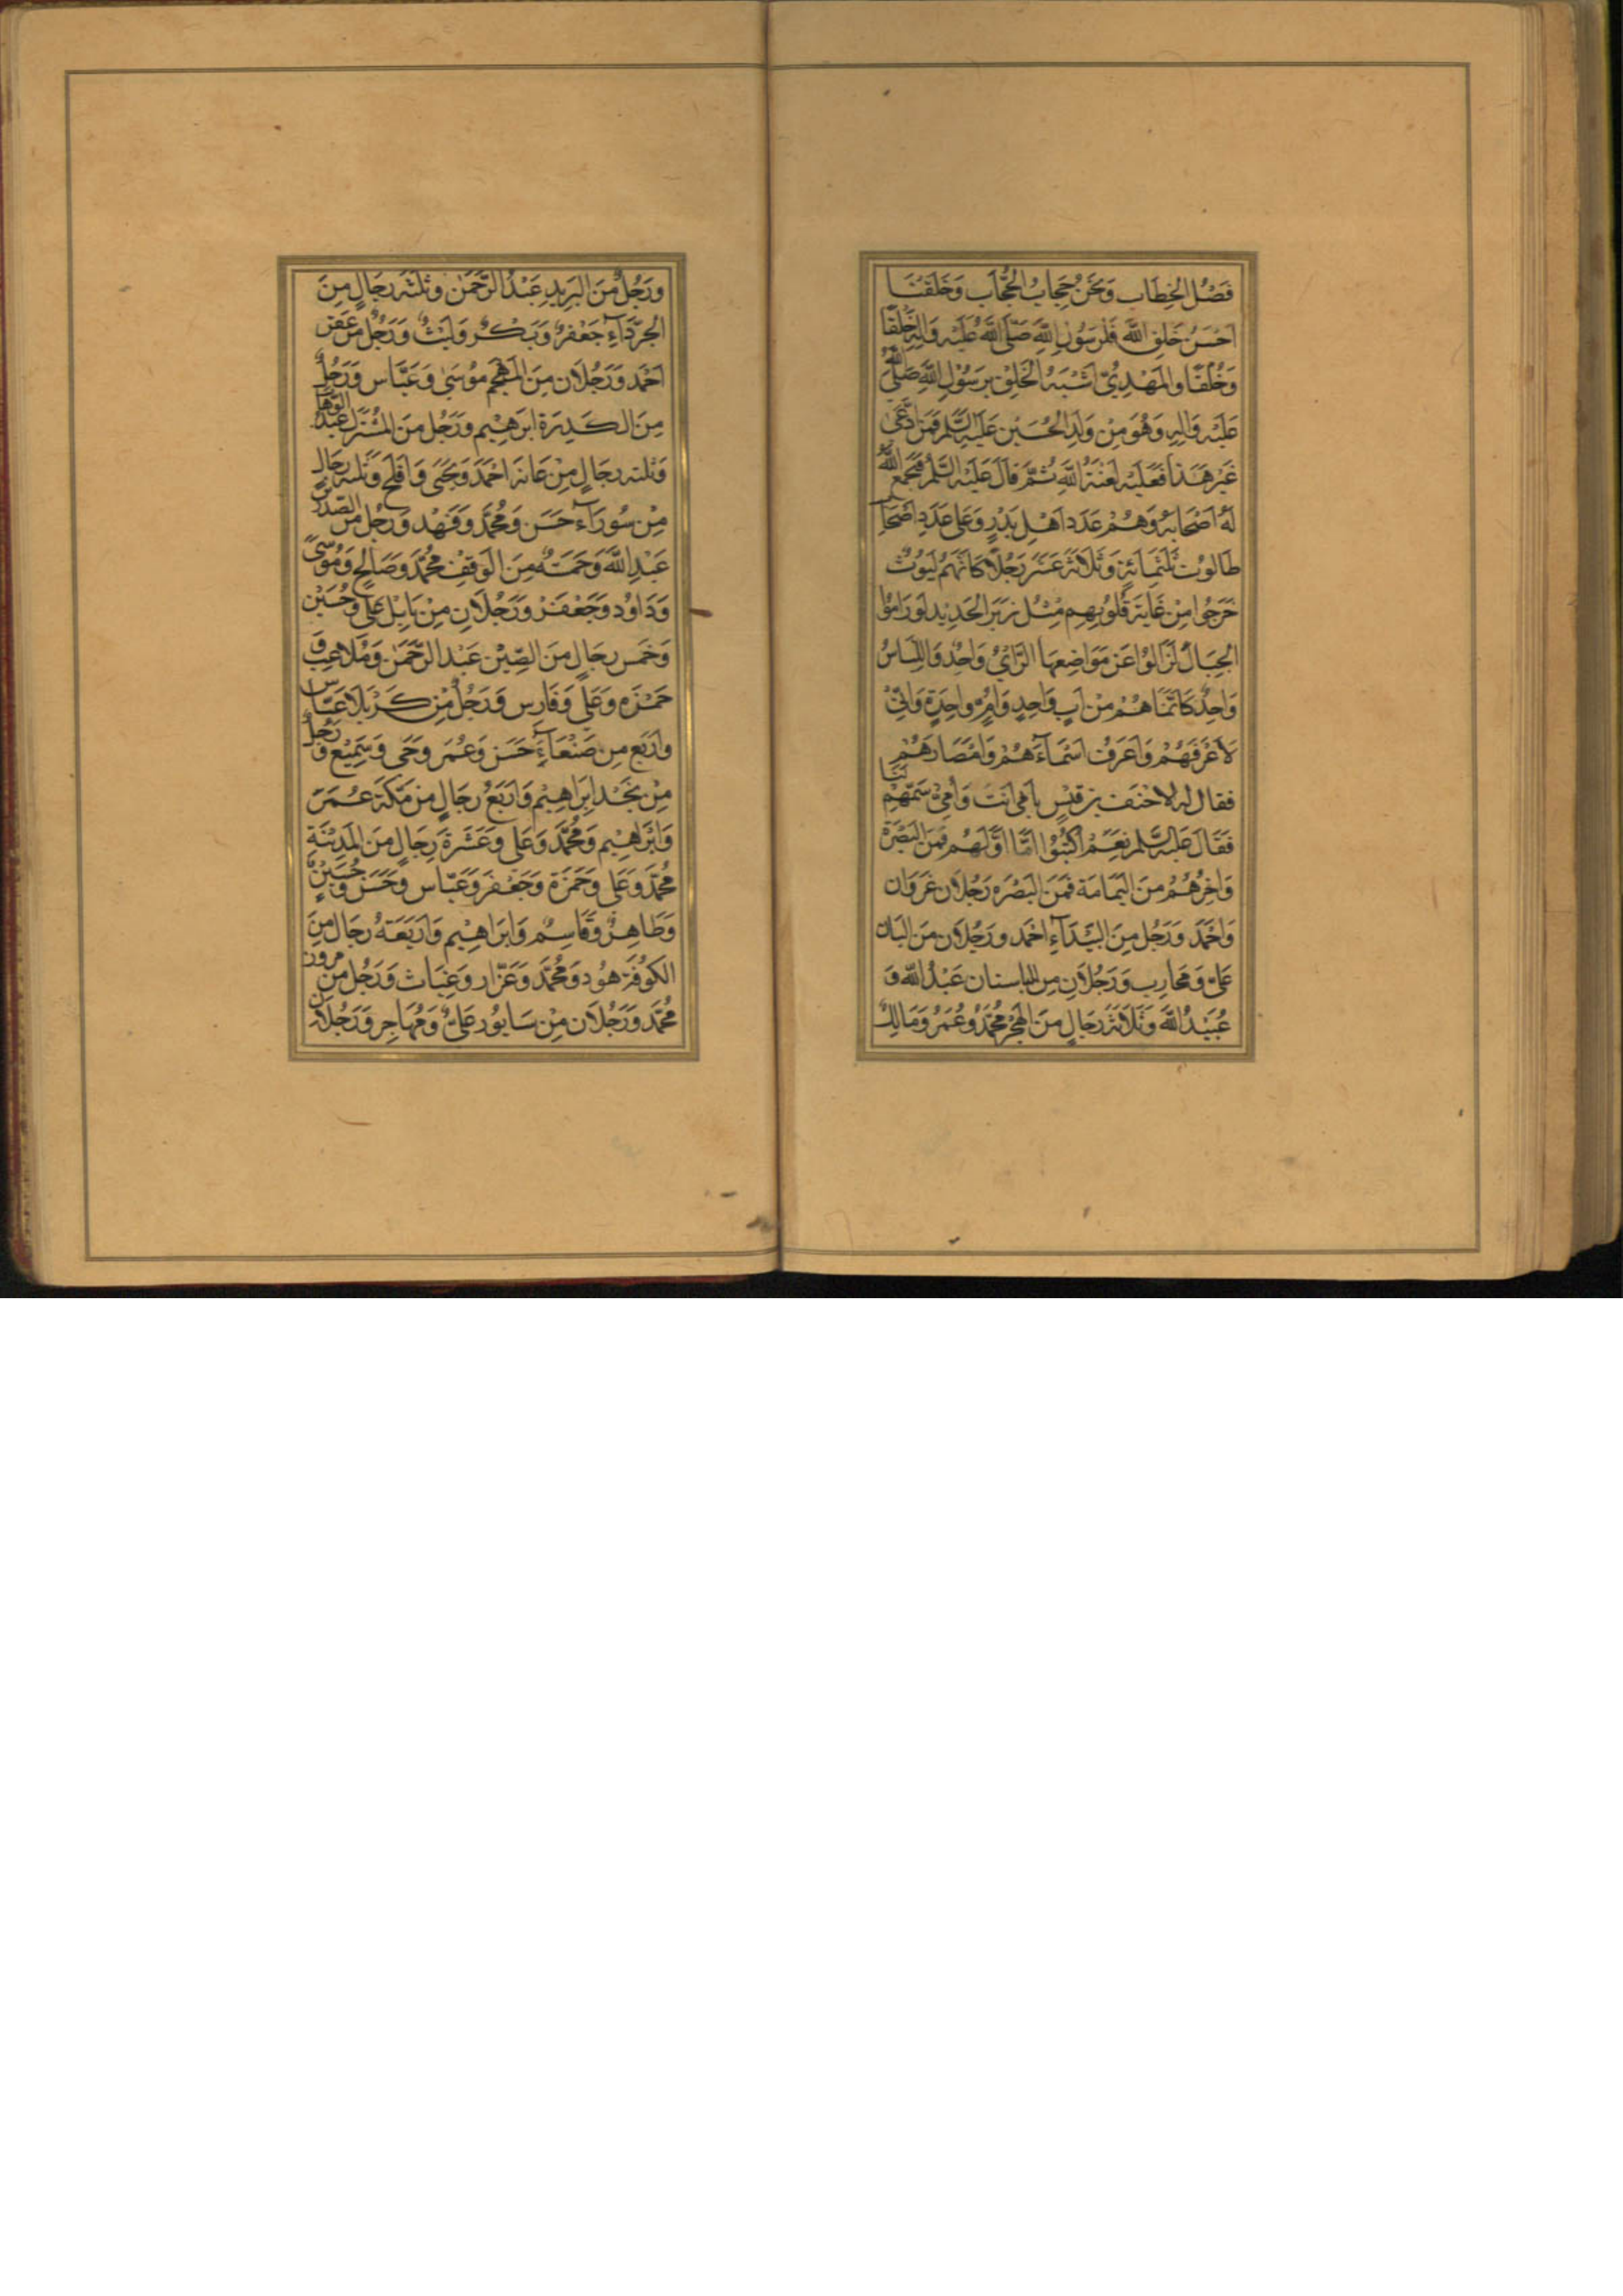 فَصْلُ الْخِطَابِ وَنَحْنُ حِجَابُ الْحُجَّابِ وَخَلَقَنَا
اَحْسَنُ خَلْقِ اللّٰهِ رَسُولِ اللّٰهِ صَلَّى اللّٰهُ عَلَيْهِ وَاٰلِهِ خَلْقًا
وَخُلُقًا وَالْمَهْدِىُّ اَشْبَهُ الْخَلْقِ بِرَسُوْلِ اللّٰهِ صَلَّى اللّٰهُ
عَلَيْهِ وَاٰلِهِ وَهُوَ مِنْ وَلَدِ الْحُسَيْنِ عَلَيْهِ السَّلَمُ فَمَنِ ادَّعٰى
غَيْرَ هَذَا فَعَلَيْهِ لَعْنَةُ اللّٰهِ ثُمَّ قَالَ عَلَيْهِ السَّلَمُ فَيَجْمَعُ اللّٰهُ
لَهُ اَصْحَابَهُ وَهُمْ عَدَد اَهْلِ بَدْرٍ وَعَلى عَدَدِ اَصْحَابِ
طَالُوتَ ثَلٰثَمِائَةٍ وَثَلَاثَةَ عَشَرَ رَجُلًا كَانَّهُمْ لُيُوثٌ
خَرَجُوا مِنْ غَابَةٍ قُلُوبُهِم مِثْل زُبَرِ الْحَدِيْدِ لَوْ رَامُوا
الْجِبَالَ لَزَالُوْا عَنْ مَوَاضِعِهَا الرَّاىُ وَاحِدٌ وَاللِّبَاسُ
وَاحِدٌ كَانَّمَا هُمْ مِنْ اَبٍ وَاحِدٍ وَاُمٍّ وَاحِدَةٍ وَاِنِّىْ
لَاَعْرِفُهُمْ وَاَعْرِفُ اَسْمَاءَهُمْ وَاَمْصَارَهُمْ
فقال له الاحْنَف بن قَيْسٍ بِاَبِى اَنْتَ وَاُمِّىْ سَمِّهِمْ لَنَا
فَقَالَ عَلَيْهِ السَّلَم نَعَمْ اُكْتُبُوْا اَمَّا اَوَّلُهُمْ فَمِنَ الْبَصْرَةِ
وَاٰخِرُهُمْ مِنَ الْيَمَامَة فَمِنَ الْبَصْرَهِ رَجُلَانِ غَزْوَان
وَاَحْمَدُ وَرَجُل مِنَ الْبَيْدَاءِ اَحْمَد وَرَجُلَانِ مِنَ
عَلِىٌّ وَمُحَارِب وَرَجُلَانِ مِنَ عَبْدُ اللّٰهِ وَ
عُبَيْدُ اللّٰهِ وَثَلَاثَة رِجَالٍ مِنَ الْهَجَرِ مُحَمَّدٌ وَعُمَرُ وَمَالِكٌ
وَرَجُلٌ مِنَ الْبَرِيدِ عَبْدُ الرَّحْمٰنِ وَثَلٰثَه رِجَالٍ مِنَ
الجرْدَاءِ جَعْفَرٌ وَبَكْرٌ وَلَيْثٌ وَرَجُلٌ مِنْ عَقر
اَحْمَد وَرَجُلَانِ مِنَ الْمَهْجَمِ مُوْسٰى وَعَبَّاس وَرَجُلٌ
مِنَ الكَدِرَة اِبْرَهِيْم وَرَجُل مِنَ عَبْدُ الْوَهَّاب
وَثلثه رِجَالٍ مِنْ عَانَه اَحْمَدُ وَيَحْيٰى وَاَفْلَح وَثَلثه رِجَالٍ
مِنْ سُورَاء حَسَن وَمُحَمَّدٌ وَفَهْد وَرَجُل مِنَ الصّدر
عَبْد اللّٰهِ وَخَمْسَةٌ مِنَ الوَقِف مُحَمَّدٌ وَصَالِحٌ وَمُوسٰى
وَدَاوُد وَجَعْفَرٌ وَرَجُلَانِ مِنْ بَابِل عَلِى وَحُسَيْن
وَخَمس رِجَالٍ مِنَ الصِّيْنِ عَبْد الرَّحْمٰنِ وَمُلَاعِب وَ
حَمْزَه وَعَلِى وَفَارِس وَرَجُلٌ مِنْ كَرْبَلَا عَبَّاس
وَاَرْبَع مِنْ صَنْعَاءَ حَسَن وَعُمَر وَيَحْيى وَسَمِيْع وَرَجُلٌ
مِنْ نَجْد اِبْرَاهِيْم وَاَرْبَعُ رِجَالٍ مِنْ مَكَّةَ عُمَرُ
وَاِبْرَاهِيْم وَمُحَمَّدٌ وَعَلِى وَعَشَرَة رِجَالٍ مِنَ الْمَدِيْنَةِ
مُحَمَّدٌ وَعَلِى وَحَمْزَة وَجَعْفَر وَعَبَّاس وَحَسَن وَحُسَيْنٌ
وَطَاهِرٌ وَقَاسِمٌ وَاِبْرَاهِيْم وَاَرْبَعَةُ رِجَال مِنَ
الكُوْفَةِ هُوْد وَمُحَمَّدٌ وَعَزَّار وَغِيَاث وَرَجُل مِنْ
مُحَمَّدٌ وَرَجُلَان مِنْ سَابُور عَلِىٌّ وَمُهَاجِر وَرَجُلَانِ